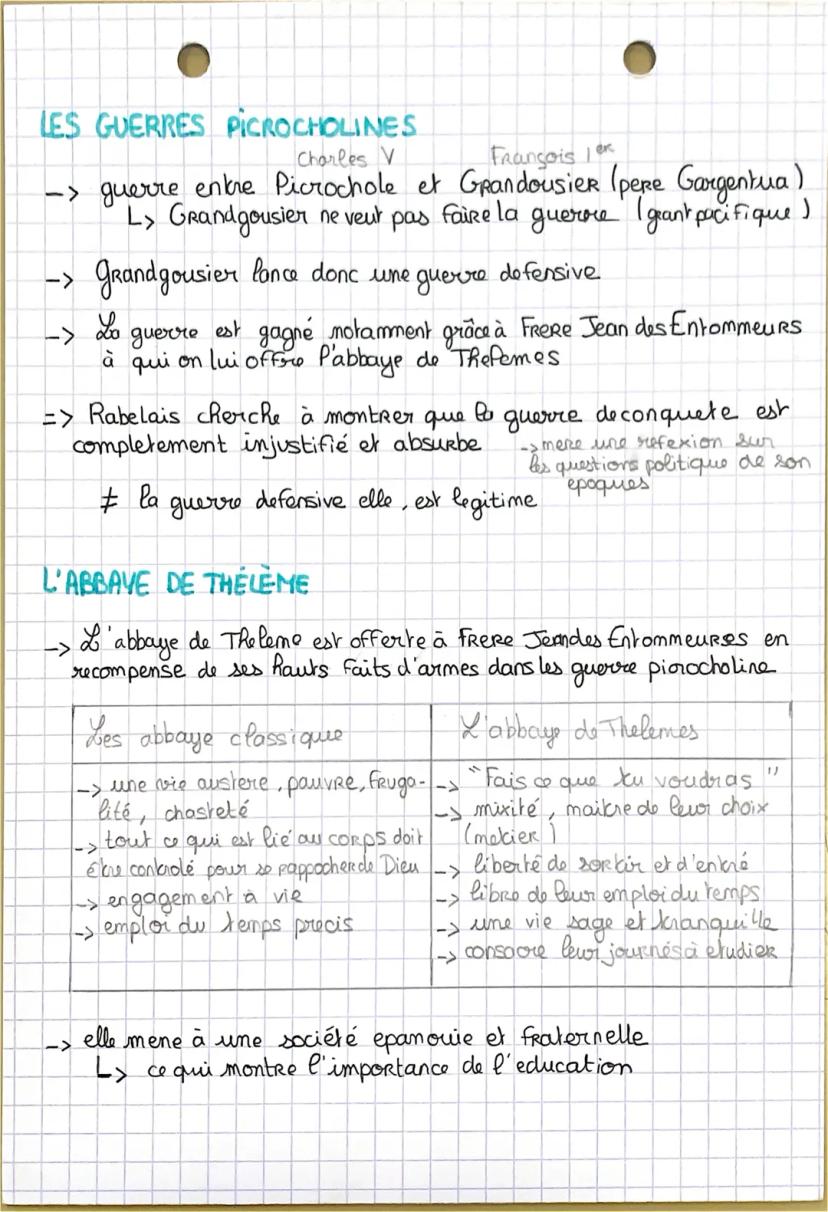 LES GUERRES PICROCHOLINES
Charles V François 1er
-> guerre entre Picrochole et Grandousier (pere Gargentua)
L> Grandgousier ne veut pas faire la guerre (grant pacifique)
-> Grandgousier lance donc une guerre defensive
-> La guerre est gagné notamment grâce à Frere Jean des Entommeurs
à qui on lui offre l'abbaye de Thelemes
=> Rabelais cherche à montrer que la guerre de conquete est
completement injustifié et absurbe
-> mene une refexion sur
les questions politique de son
epoques
≠ la guerre defensive elle, est legitime
L'ABBAYE DE THÉLÈME
-> L'abbaye de Theleme est offerte à Frere Jean des Entommeurses en
recompense de ses hauts faits d'armes dans les guerre picrocholine
Les abbaye classique
-> une vie austere, pauvre, fruga-
lité, chasteté
-> tout ce qui est lié au corps doit
être controlé pour se rappocher de Dieu
-> engagement à vie
-> emploi du temps precis
L'abbaye de Thelemes
-> "Fais ce que tu voudras"
-> mixité, maitre de leur choix
(metier)
-> liberté de sortir et d'entré
-> libre de leur emploi du temps
-> une vie sage et tranquille
-> consacre leur journés à etudier
-> elle mene à une société epanouie et fraternelle
L> ce qui montre l'importance de l'education